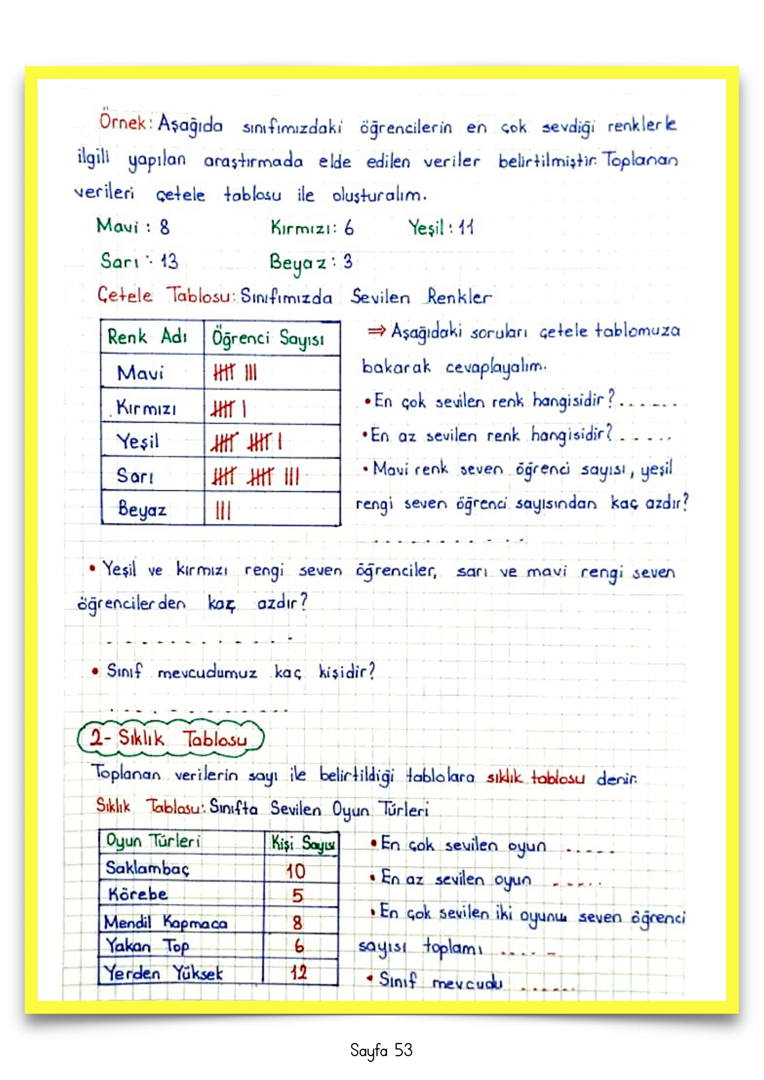 Örnek: Aşağıda sınıfımızdaki öğrencilerin en çok sevdiği renklerle
ilgili yapılan araştırmada elde edilen veriler belirtilmiştir. Toplanan
verileri çetele tablosu ile oluşturalım.
Mavi : 8 Kırmızı : 6 Yeşil : 11
Sarı : 13 Beyaz : 3
Çetele Tablosu: Sınıfımızda Sevilen Renkler
Renk Adı Öğrenci Sayısı
Mavi 卌 III
Kırmızı 卌 I
Yeşil 卌 卌 I
Sarı 卌 卌 III
Beyaz III
⇒ Aşağıdaki soruları çetele tablomuza
bakarak cevaplayalım.
• En çok sevilen renk hangisidir? . - - - - -
• En az sevilen renk hangisidir? - - - - -
• Mavi renk seven öğrenci sayısı, yeşil
rengi seven öğrenci sayısından kaç azdır?
- - - - - - - - - - -
• Yeşil ve kırmızı rengi seven öğrenciler, sarı ve mavi rengi seven
öğrencilerden kaç azdır?
- - - - - - - - - - - -
• Sınıf mevcudumuz kaç kişidir?
- - - - - - - - - - - -
2- Sıklık Tablosu
Toplanan verilerin sayı ile belirtildiği tablolara sıklık tablosu denir.
Sıklık Tablosu: Sınıfta Sevilen Oyun Türleri
Oyun Türleri Kişi Sayısı
Saklambaç 10
Körebe 5
Mendil Kapmaca 8
Yakan Top 6
Yerden Yüksek 12
• En çok sevilen oyun - - - - -
• En az sevilen oyun - - - - -
• En çok sevilen iki oyunu seven öğrenci
sayısı toplamı - - - - -
• Sınıf mevcudu - - - - - -
Sayfa 53